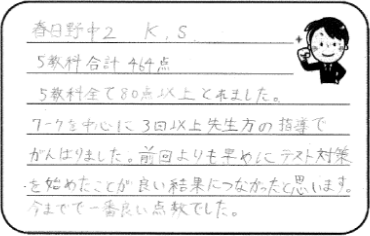 春日野中2 K.S
5教科合計464点
5教科全て80点以上とれました。
ワークを中心に3回以上先生方の指導で
がんばりました。前回よりも早めにテスト対策
を始めたことが良い結果につながったと思います。
今までで一番良い点数でした。